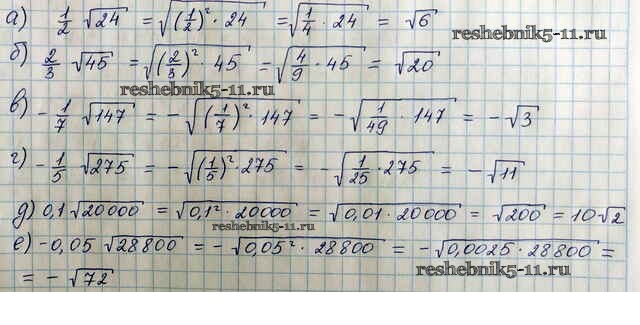 а) 1/2 √24 = √((1/2)² · 24) = √(1/4 · 24) = √6
reshebnik5-11.ru
б) 2/3 √45 = √((2/3)² · 45) = √(4/9 · 45) = √20
reshebnik5-11.ru
в) -1/7 √147 = -√((1/7)² · 147) = -√(1/49 · 147) = -√3
г) -1/5 √275 = -√((1/5)² · 275) = -√(1/25 · 275) = -√11
д) 0,1 √20000 = √(0,1² · 20000) = √(0,01 · 20000) = √200 = 10√2
е) -0,05 √28800 = -√(0,05² · 28800) = -√(0,0025 · 28800) =
= -√72
reshebnik5-11.ru